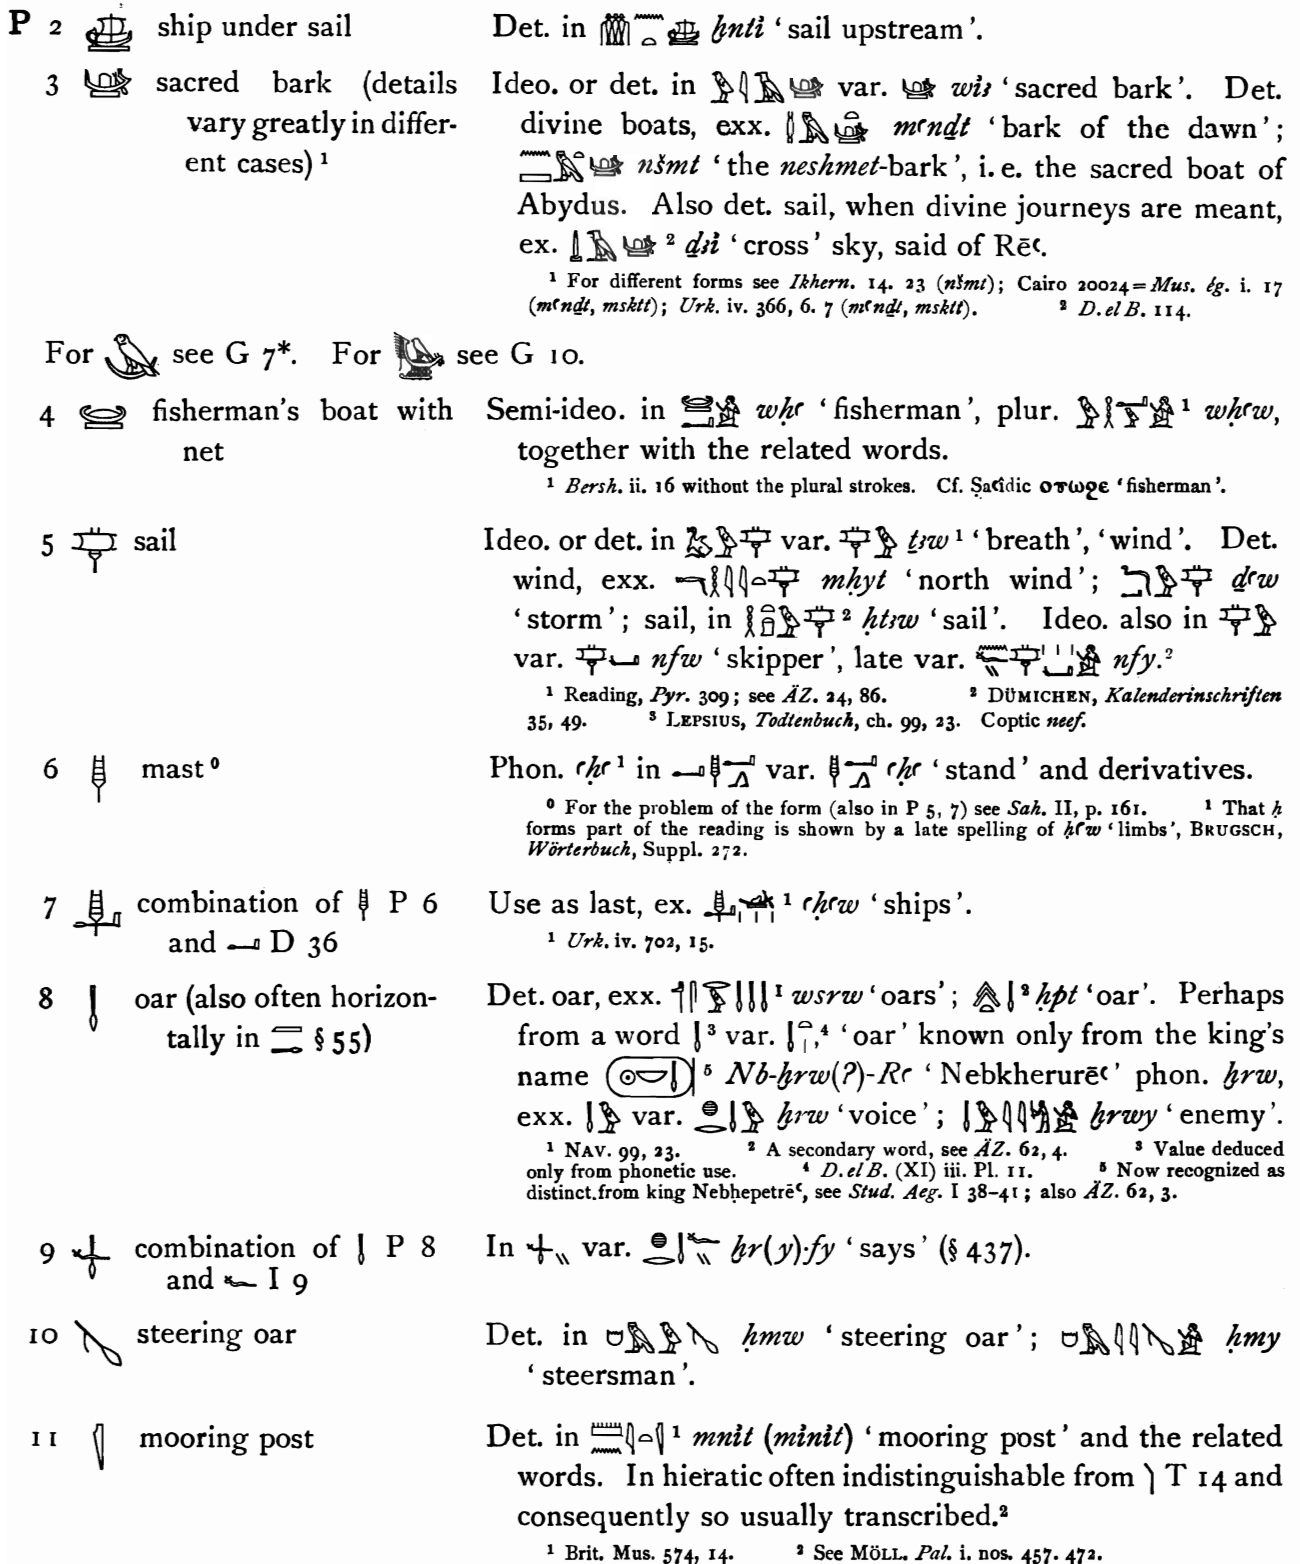 P 2 𓊞 ship under sail Det. in 𓏃𓈖𓏏𓊞 ḫnti҆ ‘sail upstream’.
3 𓊟 sacred bark (details Ideo. or det. in 𓅱𓇋𓄿𓊟 var. 𓊟 wi҆ꜣ ‘sacred bark’. Det.
vary greatly in differ- divine boats, exx. 𓅓𓊟 mꜥnḏt ‘bark of the dawn’;
ent cases) ¹ 𓈖𓈙𓅓𓏏𓊟 nšmt ‘the neshmet-bark’, i. e. the sacred boat of
Abydus. Also det. sail, when divine journeys are meant,
ex. 𓍑𓄿𓊟 ² ḏꜣi҆ ‘cross’ sky, said of Rēꜥ.
¹ For different forms see Ikhern. 14. 23 (nšmt); Cairo 20024=Mus. ég. i. 17
(mꜥnḏt, msktt); Urk. iv. 366, 6. 7 (mꜥnḏt, msktt). ² D. el B. 114.
For see G 7*. For see G 10.
4 𓊡 fisherman’s boat with Semi-ideo. in wḥꜥ ‘fisherman’, plur. ¹ wḥꜥw,
net together with the related words.
¹ Bersh. ii. 16 without the plural strokes. Cf. Ṣaꜥîdic ⲟⲩⲱϩⲉ ‘fisherman’.
5 𓊡 sail Ideo. or det. in 𓅷𓅱𓊡 var. 𓊡𓅱 ṯꜣw ¹ ‘breath’, ‘wind’. Det.
wind, exx. 𓎔𓇋𓇋𓏏𓊡 mḥyt ‘north wind’; 𓅱𓊡 ḏꜥw
‘storm’; sail, in 𓎛𓅱𓊡 ² ḥtꜣw ‘sail’. Ideo. also in 𓊡𓅱
var. 𓊡𓂝 nfw ‘skipper’, late var. nfy.²
¹ Reading, Pyr. 309; see ÄZ. 24, 86. ² DÜMICHEN, Kalenderinschriften
35, 49. ³ LEPSIUS, Todtenbuch, ch. 99, 23. Coptic neef.
6 𓊢 mast ⁰ Phon. ꜥḥꜥ ¹ in 𓂝𓊢𓂝𓂻 var. 𓊢𓂝𓂻 ꜥḥꜥ ‘stand’ and derivatives.
⁰ For the problem of the form (also in P 5, 7) see Sah. II, p. 161. ¹ That ḥ
forms part of the reading is shown by a late spelling of ḥꜥw ‘limbs’, BRUGSCH,
Wörterbuch, Suppl. 272.
7 𓊣 combination of 𓊢 P 6 Use as last, ex. 𓊣 ¹ ꜥḥꜥw ‘ships’.
and 𓂝 D 36 ¹ Urk. iv. 702, 15.
8 𓊤 oar (also often horizon- Det. oar, exx. 𓄊𓋴𓂋𓅱𓊤𓊤𓊤 ¹ wsrw ‘oars’; 𓊤 ² ḥpt ‘oar’. Perhaps
tally in § 55) from a word 𓊤 ³ var. 𓊤𓏏𓏤,⁴ ‘oar’ known only from the king’s
name 𓍹𓇳𓎟𓊤𓍺 ⁵ Nb-ḫrw(?)-Rꜥ ‘Nebkherurēꜥ’ phon. ḫrw,
exx. 𓊤𓅱 var. 𓐍𓂋𓊤𓅱 ḫrw ‘voice’; 𓊤𓅱𓇋𓇋𓀏𓀀 ḫrwy ‘enemy’.
¹ NAV. 99, 23. ² A secondary word, see ÄZ. 62, 4. ³ Value deduced
only from phonetic use. ⁴ D. el B. (XI) iii. Pl. 11. ⁵ Now recognized as
distinct from king Nebḥepetrēꜥ, see Stud. Aeg. I 38–41; also ÄZ. 62, 3.
9 𓊥 combination of 𓊤 P 8 In 𓊥𓏭 var. 𓐍𓂋𓊤𓆑𓏭 ḫr(y)·fy ‘says’ (§ 437).
and 𓆑 I 9
10 𓊦 steering oar Det. in 𓅓𓅱𓊦 ḥmw ‘steering oar’; 𓅓𓇋𓇋𓊦𓀀 ḥmy
‘steersman’.
11 𓊧 mooring post Det. in 𓏠𓈖𓇋𓏏𓊧 ¹ mni҆t (mi҆ni҆t) ‘mooring post’ and the related
words. In hieratic often indistinguishable from 𓌙 T 14 and
consequently so usually transcribed.²
¹ Brit. Mus. 574, 14. ² See MÖLL. Pal. i. nos. 457. 472.